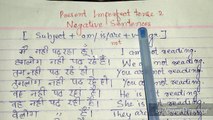 Present Imperfect tense 2
Negative Sentences
[ Subject + am/is/are + not +
मैं नहीं पढ़ रहा हूँ। I am not reading.
हमलोग नहीं पढ़ रहे हैं। We are not reading.
तुम नहीं पढ़ रहे हो। You are not reading.
नहीं पढ़ रहे हैं। You are not reading.
वह नहीं पढ़ रहा है। He is not reading.
वह नहीं पढ़ रही है। She is not reading.
वे नहीं They are not reading